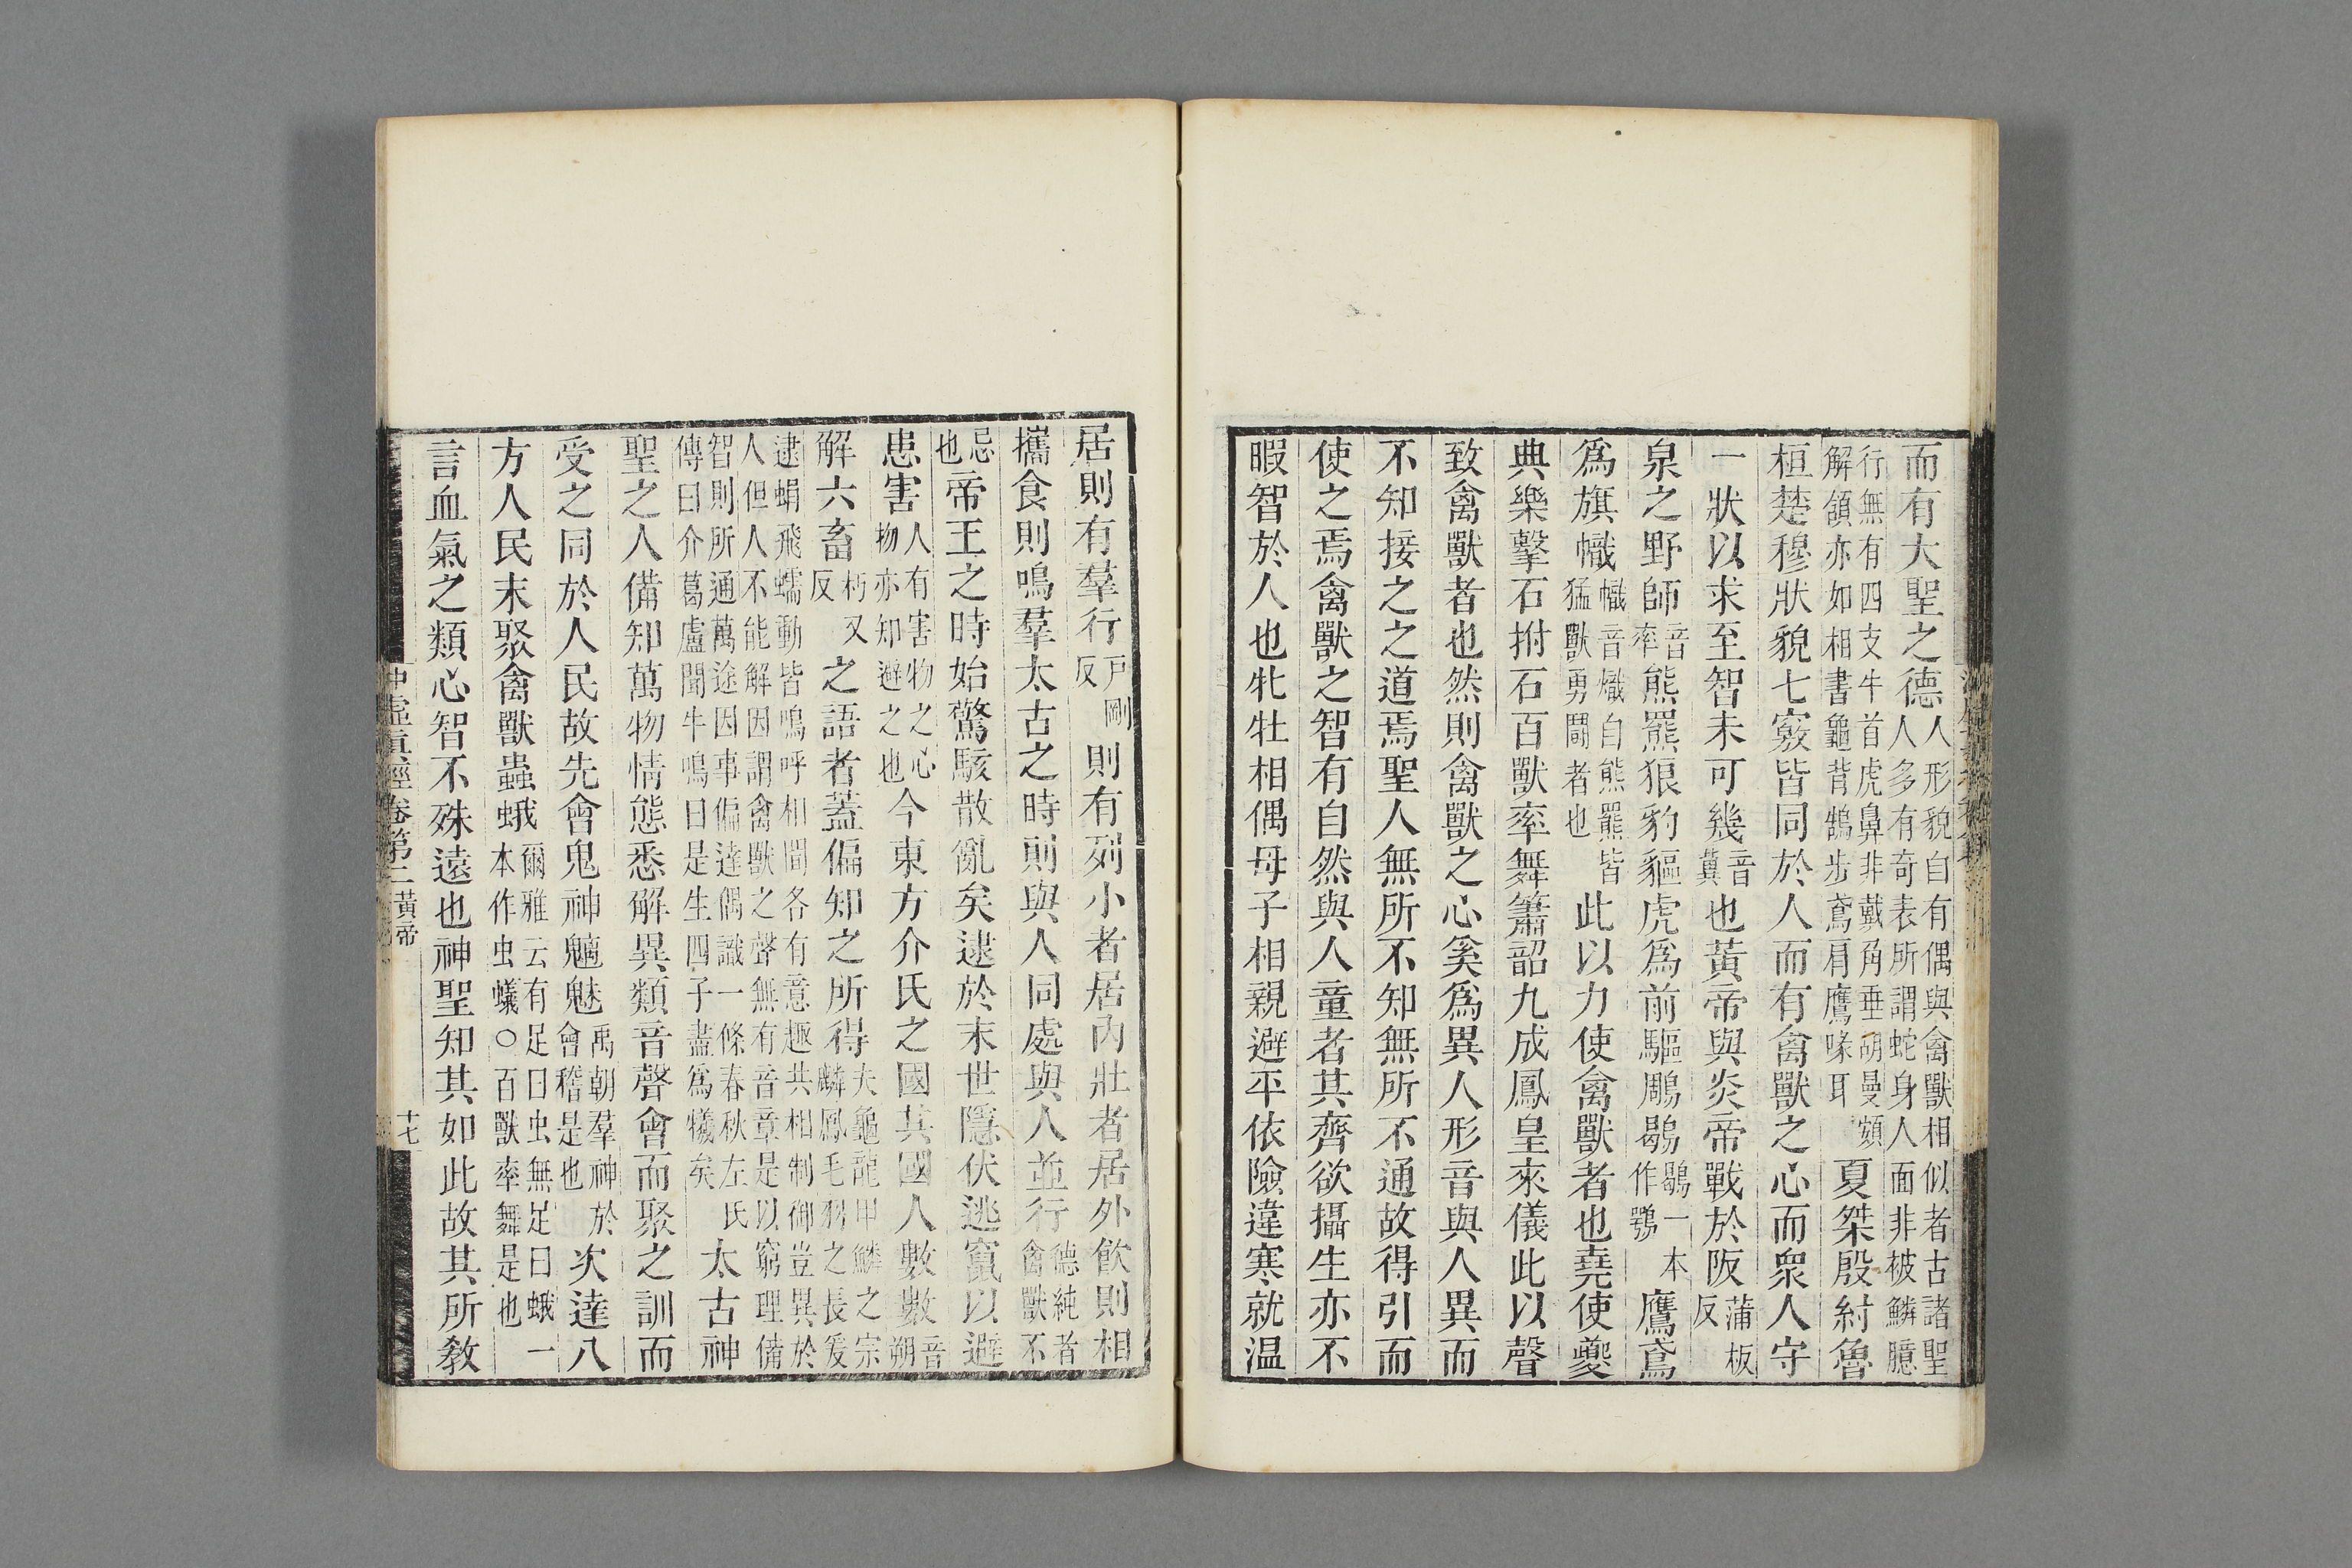 而有大聖之德人形貌自有偶與禽獸相似者古諸聖人多有奇表所謂蛇身人面非被鱗臆
行無有四支牛首虎鼻非戴角垂胡曼頞解頷亦如相書龜背鵠步鳶肩鷹喙耳夏桀殷紂魯
桓楚穆狀貌七竅皆同於人而有禽獸之心而衆人守
一狀以求至智未可幾音冀也黃帝與炎帝戰於阪蒲板反
泉之野師音率熊羆狼豹貙虎爲前驅鵰鶡鶡一本作鶚鷹鳶
爲旗幟幟音熾自熊羆皆猛獸勇鬭者也此以力使禽獸者也堯使夔
典樂擊石拊石百獸率舞簫韶九成鳳皇來儀此以聲
致禽獸者也然則禽獸之心奚爲異人形音與人異而
不知接之之道焉聖人無所不知無所不通故得引而
使之焉禽獸之智有自然與人童者其齊欲攝生亦不
暇智於人也牝牡相偶母子相親避平依險違寒就温
居則有羣行戸剛反則有列小者居內壯者居外飲則相
攜食則鳴羣太古之時則與人同處與人並行德純者禽獸不
忌也帝王之時始驚駭散亂矣逮於末世隱伏逃竄以避
患害人有害物之心物亦知避之也今東方介氏之國其國人數數音朔
解六畜朽又反之語者蓋偏知之所得夫龜龍甲鱗之宗麟鳳毛羽之長爰
逮蜎飛蠕動皆鳴呼相聞各有意趣共相制御豈異於人但人不能解因謂禽獸之聲無有音章是以窮理備
智則所通萬途因事偏達偶識一條春秋左氏傳曰介葛盧聞牛鳴曰是生四子盡爲犧矣太古神
聖之人備知萬物情態悉解異類音聲會而聚之訓而
受之同於人民故先會鬼神魑魅禹朝羣神於會稽是也次達八
方人民末聚禽獸蟲蛾爾雅云有足曰虫無足曰蛾一本作虫蟻○百獸率舞是也
言血氣之類心智不殊遠也神聖知其如此故其所敎
沖虛眞經卷第二 黃帝 十七